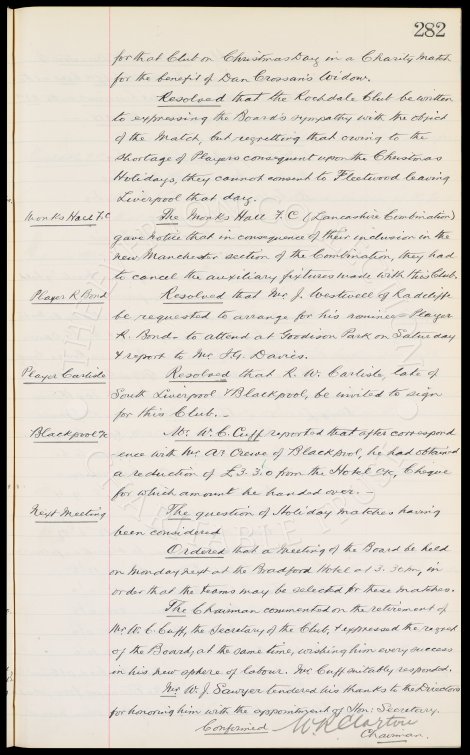 282
for that Club on Christmas Day in a Charity match
for the benefit of Dan Crossan's Widow.
Resolved that the Rochdale Club be written
to expressing the Board's sympathy with the object
of the Match, but regretting that owing to the
shortage of Players consequent upon the Christmas
Holidays, they cannot consent to Fleetwood leaving
Liverpool that day.
Monks Hall F.C
The Monks Hall F.C (Lancashire Combination)
gave notice that in consequence of their inclusion in the
new Manchester section of the Combination, they had
to cancel the auxiliary fixtures made with this Club.
Player R Bond
Resolved that Mr J. Westwell of Radcliffe
be requested to arrange for his nominee Player
R. Bond to attend at Goodison Park on Saturday
& report to Mr Davies.
Player Carlisle
Resolved that R. W. Carlisle, late of
South Liverpool & Blackpool, be invited to sign
for this Club.
Blackpool Fc
Mr W. C. Cuff reported that after correspond
ence with Mr of Blackpool, he had obtained
a reduction of £3.3.0 from the Hotel Cheque
for which amount he handed over.
Next Meeting
The question of Holiday matches having
been considered
Ordered that a meeting of the Board be held
on Monday next at the Bradford Hotel at 3.30pm, in
order that the teams may be selected for these matches.
The Chairman commented on the retirement of
Mr W. C. Cuff, the Secretary of the Club, & expressed the regret
of the Board, at the same time, wishing him every success
in his new sphere of labour. Mr Cuff suitably responded.
Mr W. J. Sawyer tendered his thanks to the Directors
for honoring him with the appointment of Hon: Secretary.
Confirmed W R Clayton
Chairman.